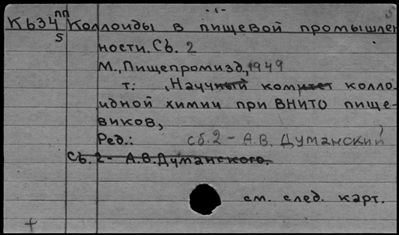 -1-
К634 пп Коллоиды в пищевой промышлен
5
ности. Сб. 2
М., Пищепромизд, 1949
т: Научный комитет колло-
идной химии при ВНИТО пище-
виков,
Ред.: сб. 2 - А.В. Думанский
Сб. 2 - А.В. Думанского.
см. след. карт.